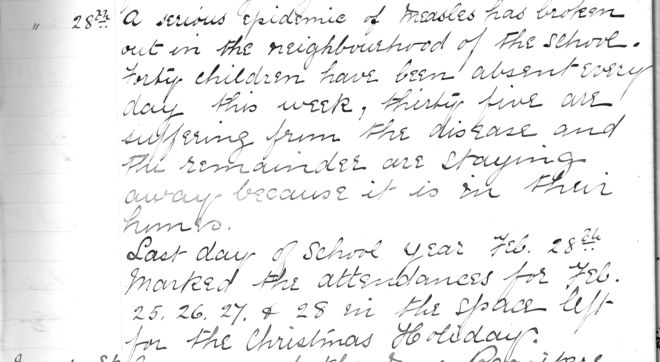 " 28th A serious epidemic of measles has broken
out in the neighbourhood of the school.
Forty children have been absent every
day this week, thirty five are
suffering from the disease and
the remainder are staying
away because it is in their
homes.
Last day of School Year Feb. 28th
Marked the attendances for Feb.
25. 26. 27. & 28 in the space left
for the Christmas Holiday.